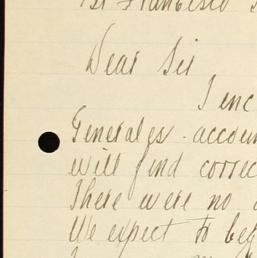 Francisco
Dear Sir
I enc
Generales. accoun
will find correc
There were no
We expect to beg